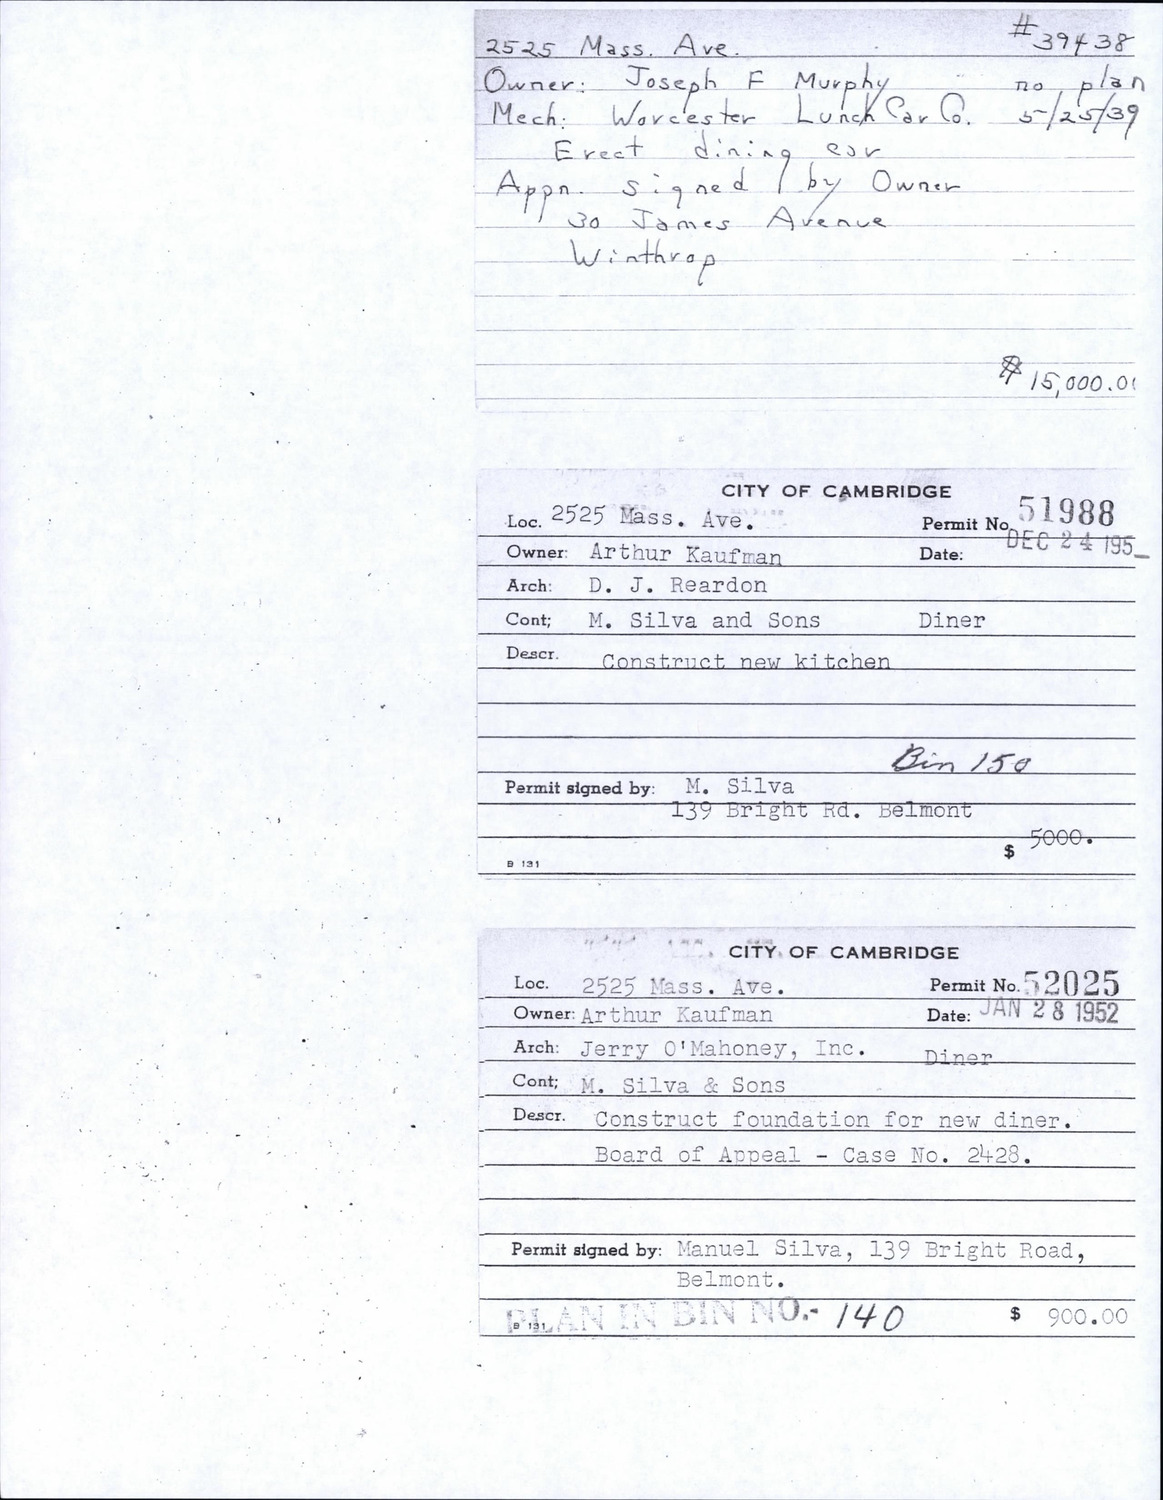 2525 Mass. Ave. #39438
Owner: Joseph F Murphy no plan
Mech: Worcester Lunch Car Co. 5/25/39
Erect dining car
Appn. signed by Owner
30 James Avenue
Winthrop
$15,000.00
CITY OF CAMBRIDGE
Loc. 2525 Mass. Ave. Permit No. 51988
Owner: Arthur Kaufman Date: DEC 24 195
Arch: D. J. Reardon
Cont; M. Silva and Sons Diner
Descr. Construct new kitchen
Bin 150
Permit signed by: M. Silva
139 Bright Rd. Belmont
$ 5000.
B 131
CITY OF CAMBRIDGE
Loc. 2525 Mass. Ave. Permit No. 52025
Owner: Arthur Kaufman Date: JAN 28 1952
Arch: Jerry O'Mahoney, Inc. Diner
Cont; M. Silva & Sons
Descr. Construct foundation for new diner.
Board of Appeal - Case No. 2428.
Permit signed by: Manuel Silva, 139 Bright Road,
Belmont.
PLAN IN BIN NO.- 140 $ 900.00
B 131